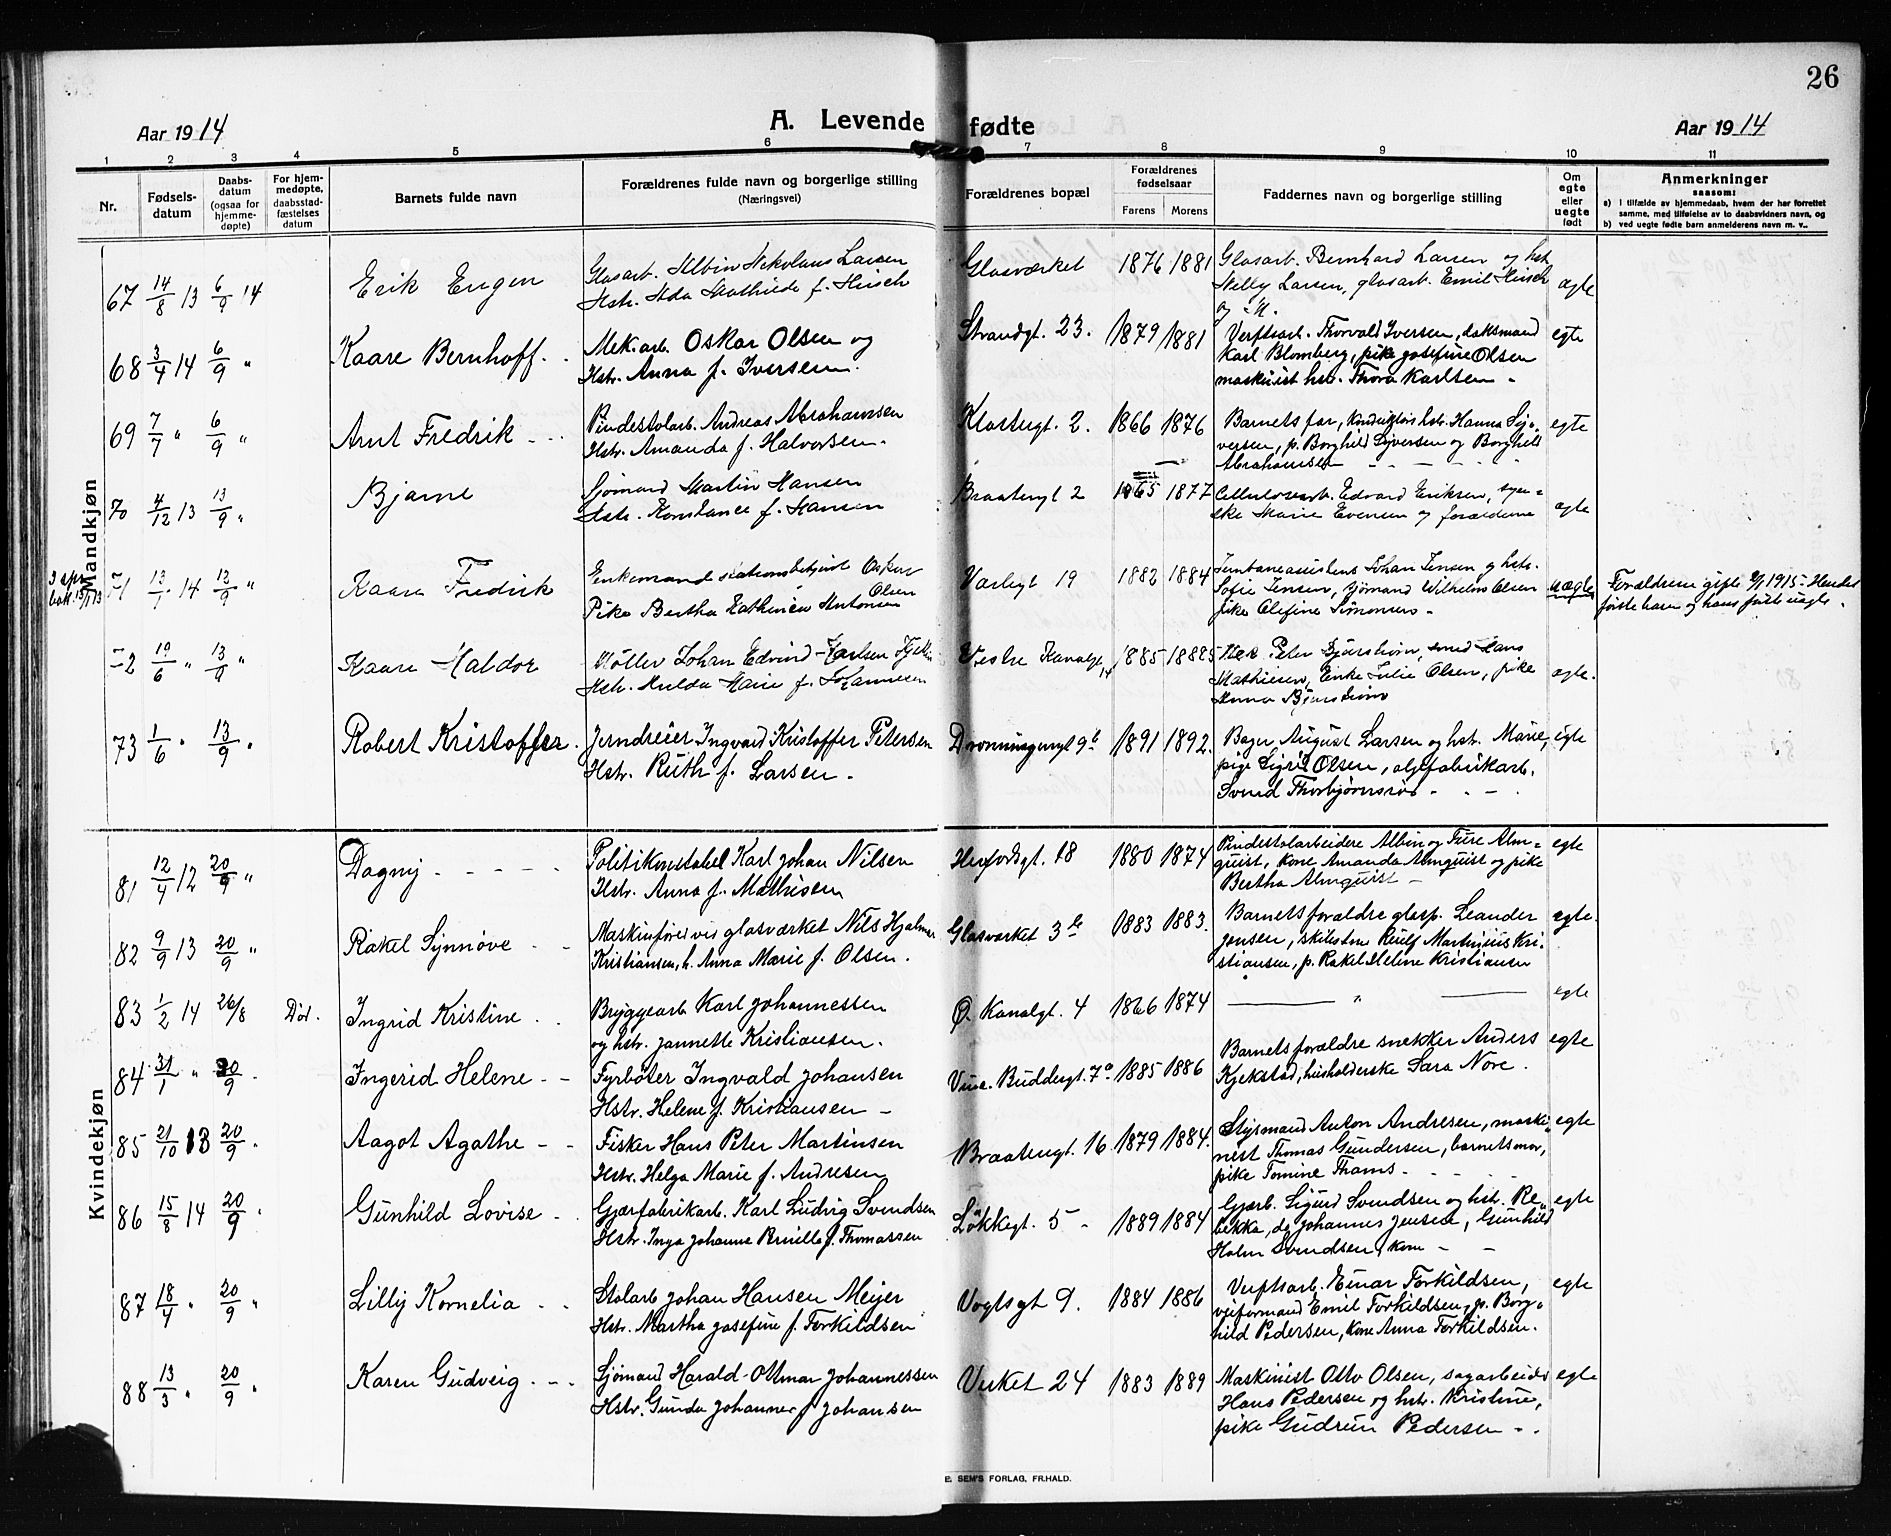 26
Aar 1914
A. Levende fødte
Aar 1914
1 2 3 4 5 6 7 8 9 10 11
Nr.
Fødsels-
datum
Daabs-
datum
(ogsaa for
hjemme-
døpte)
For hjem-
medøpte,
daabsstad-
fæstelses
datum
Barnets fulde navn
Forældrenes fulde navn og borgerlige stilling
(Næringsvei)
Forældrenes bopæl
Forældrenes
fødselsaar
Farens Morens
Faddernes navn og borgerlige stilling
Om
egte
eller
uegte
født
Anmerkninger
saasom:
a) i tilfælde av hjemmedaab, hvem der har forrettet
samme, med tilføielse av to daabsvidners navn, og
b) ved uegte fødte barn anmelderens navn m. v..
Mandkjøn
67 14/8 13 6/9 14 Erik Engen
Glasarb. Albin Nikolaus Larsen
Hstr. Ida Mathilde f. Hirsch
Glasværket 1876 1881
Glasarb. Bernhard Larsen og hst.
Nelly Larsen, glasarb. Emil Hirsch
egte
68 3/4 14 6/9 " Kaare Bernhoff.
Mek.arb. Oskar Olsen og
Hstr. Anna f. Iversen.
Strandgt. 23. 1879 1881
Verftsarb. Thorvald Iversen, daksmand
Karl Blomberg, pike Josefine Olsen
maskinist hst. Thora Karlsen -
egte
69 7/7 " 6/9 " Arnt Fredrik
Pindestolarb. Andreas Abrahamsen
Hstr. Amanda f. Halvorsen.
Klostergt. 2. 1866 1876
Barnets far, hst. Hanna Syv-
versen, p. Borghild Syversen og Borghild
Abrahamsen
egte
70 4/12 13 13/9 " Bjarne
Sjømand Martin Hansen
Hstr. Konstance f. Hansen
Braatengt 2 1865 1877
Cellulosearb. Edvard Eriksen, syer-
ske Marie Evensen og forældrene
egte
13/9 " Kaare Fredrik
Enkemand stationsbetjent Oskar
Olsen
Pike Bertha Kathinca Antonsen
Varbgt 19 1882 1884
Johan Jensen og hst.
Sofie Jensen, sjømand Wilhelm Olsen
pike Olefine Simonsen -
uægte
Forældrene gifte 1915 - Hendes
første barn og hans første uægte.
19/6 " 13/9 " Kaare Haldor
Møller Johan Edvind Karlsen
Hstr. Hulda Marie f. Johannesen
Vestre Kanalgt. 14 1885
Peter Bjurstrøm, smed Hans
Mathiesen, Enke Julie Olsen, pike
Anna Bjurstrøm
egte.
73 1/6 " 13/9 " Robert Kristoffer.
Jerndreier Ingvard Kristoffer Petersen
Hstr. Ruth f. Larsen -
Dronningensgt 9b 1891 1892.
Bager August Larsen og hst. Marie,
pige Sigrid Olsen, oljefabrikarb.
Svend Thorbjørnsrød -
egte
Kvindekjøn
81 12/4 12 20/9 " Dagny
Politikonstabel Karl Johan Nilsen
Hstr. Anna f. Mathisen
Herfordsgt. 18 1880 1874
Pindestolarbeidere Albin og Ture Alm-
quist, kone Amanda Almquist og pike
Bertha Almquist -
egte
82 9/9 13 20/9 " Rakel Synnøve
Maskinfører ved glasværket Nils Hjalmar
Kristiansen, h. Anna Marie f. Olsen.
Glasværket 3 1883 1883.
Barnets forældre glasp. Leander
Jensen, Martinius Kri-
stiansen, p. Rakel Helene Kristiansen
egte.
83 1/2 14 26/8 Død. Ingrid Kristine
Bryggearb Karl Johannessen
og hstr. Jannette Kristiansen.
Ø. Kanalgt. 4 1866 1874
"
egte
84 31/1 " 20/9 . Ingerid Helene
Fyrbøter Ingvald Johansen
Hstr. Helene f. Kristiansen -
Vinc. Buddesgt. 7a 1885 1886
Barnets forældre snekker Anders
Kjekstad, husholderske Sara Nore.
egte
85 21/10 13 20/9 . Aagot Agathe
Fisker Hans Peter Martinsen
Hstr. Helga Marie f. Andresen
Braatengt. 16 1879 1884.
Styrmand Anton Andresen, maski-
nest Thomas Gundersen, barnets mor,
pike Tomine Thams -
egte
86 15/8 14 20/9 . Gunhild Lovise
Gjærfabrikarb. Karl Ludvig Svendsen
Hstr. Inga Johanne Pernille f. Thomassen
Løkkegt. 5 - 1889 1884
Gjærb. Sigurd Svendsen og hst. Re-
bekka, do Johannes Jensen, Gunhild
Holm Svendsen, kone -
egte
87 18/4 " 20/9 " Lilly Kornelia
Stolarb Johan Hansen Meijer
Hstr. Martha Josefine f. Torkildsen
Vogtsgt 9. 1884 1886
Verftsarb. Einar Torkildsen,
veiformand Emil Torkildsen, p. Borg-
hild Pedersen, kone Anna Torkildsen.
egte
88 13/3 " 20/9 . Karen Gudveig
Sjømand Harald Ottmar Johannessen
Hstr. Gunda Johanne f. Johansen
Verket 24 1883 1889
Maskinist Otto Olsen, sagarbeider
Hans Pedersen og hst. Kristine,
pike Gudrun Pedersen -
egte
E. SEM'S FORLAG, FR.HALD.